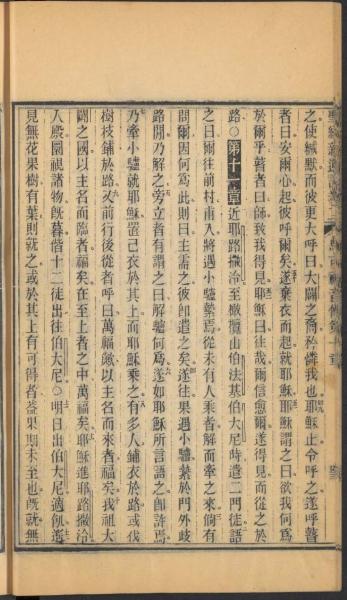 之使緘默而彼更大呼曰大闢之裔矜憐我也耶穌止令呼之遂呼瞽
者曰安爾心起彼呼爾矣遂棄衣而起就耶穌耶穌謂之曰欲我何為
於爾乎瞽者曰師致我得見耶穌曰往哉爾信愈爾遂得見而從之於
路○第十一章近耶路撒冷至橄欖山伯法基伯大尼時遣二門徒語
之曰爾往前村甫入將遇小驢縶焉從未有人乘者解而牽之來倘有
問爾因何為此則曰主需之彼卽遣之矣遂往果遇小驢縶於門外歧
路間乃解之旁立者有謂之曰解驢何為遂如耶穌所言語之卽許焉
乃牽小驢就耶穌置己衣於其上而耶穌乘之有多人鋪衣於路或伐
樹枝鋪於路又前行後從者呼曰萬福歟以主名而來者福矣我祖大
闢之國以主名而臨者福矣在至上者之中萬福矣耶穌進耶路撒冷
入殿園視諸物旣暮偕十二徒出往伯大尼○明日出伯大尼適飢遙
見無花果樹有葉則就之或於其上有可得者蓋果期未至也旣就無